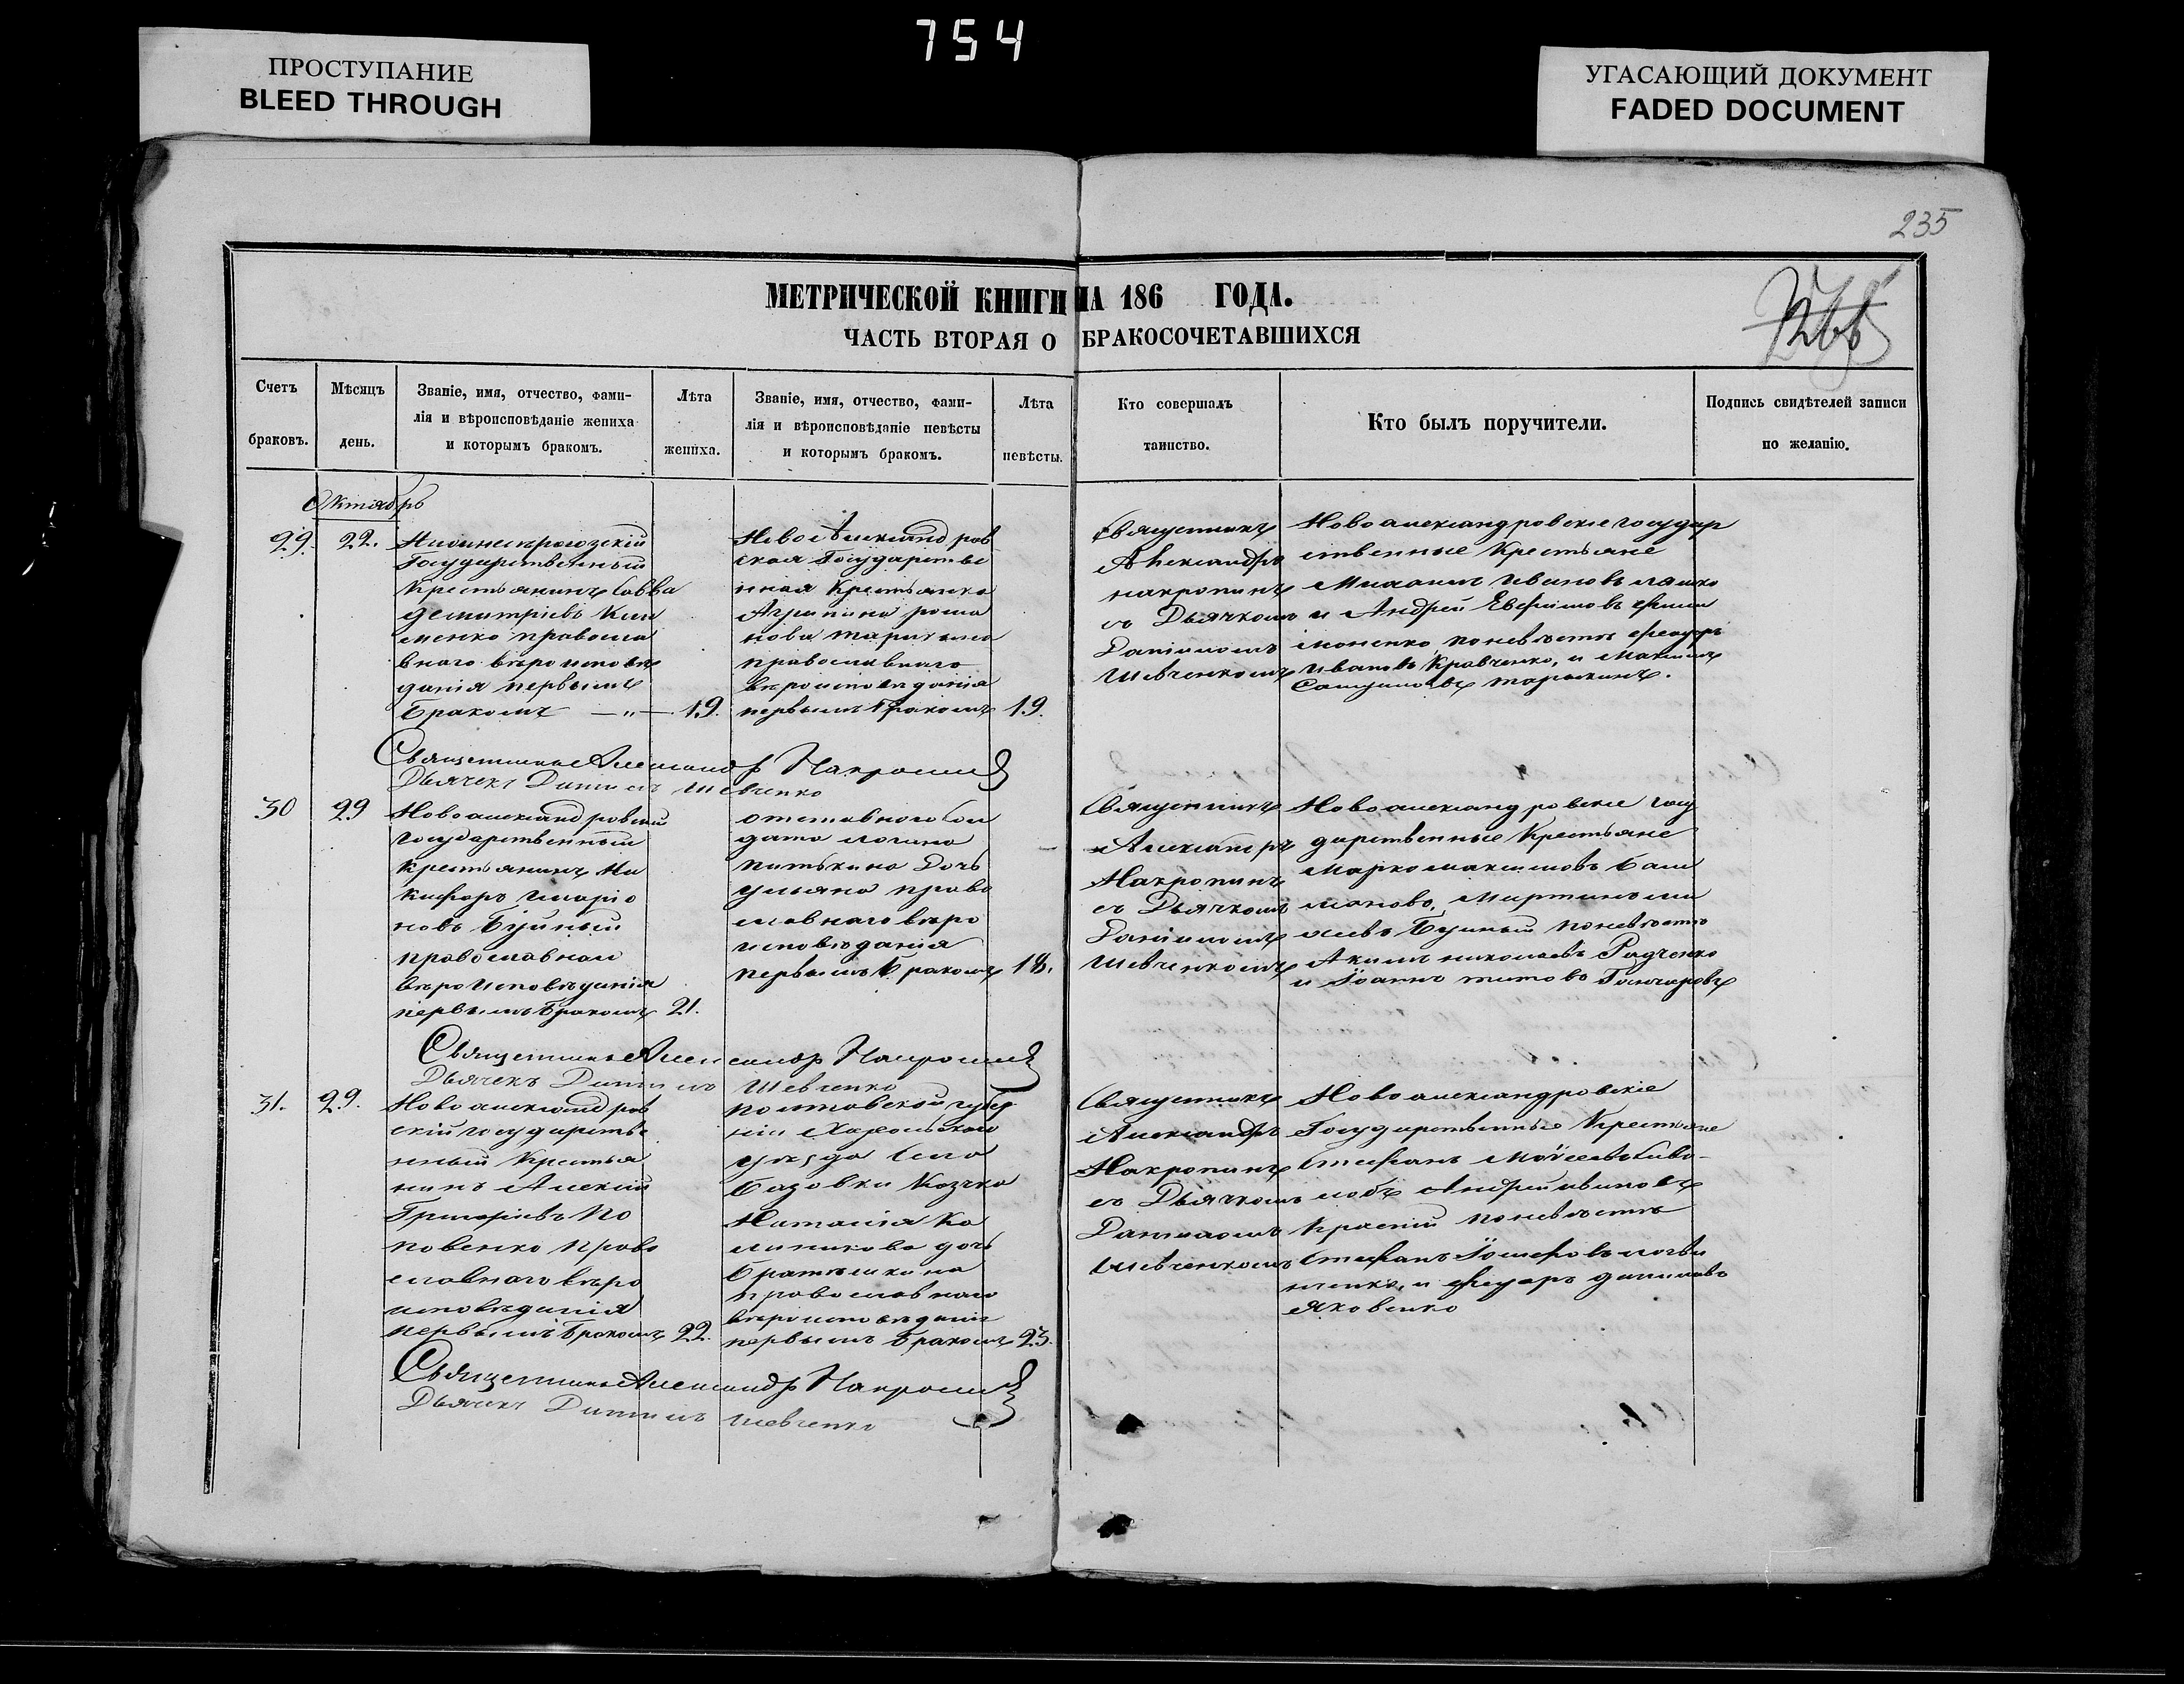 754
ПРОСТУПАНИЕ
BLEED THROUGH
УГАСАЮЩИЙ ДОКУМЕНТ
FADED DOCUMENT
235
МЕТРИЧЕСКОЙ КНИГИ НА 186 ГОДА.
ЧАСТЬ ВТОРАЯ О БРАКОСОЧЕТАВШИХСЯ
Счетъ
браковъ.
Мѣсяцъ
день.
Званіе, имя, отчество, фами-
лія и вѣроисповѣданіе жениха
и которымъ бракомъ.
Лѣта
жениха.
Званіе, имя, отчество, фами-
лія и вѣроисповѣданіе невѣсты
и которымъ бракомъ.
Лѣта
невѣсты.
Кто совершалъ
таинство.
Кто былъ поручители.
Подпись свидѣтелей записи
по желанію.
Октябрь
29. 22.
Государственный
Крестьянинъ Савва
Димитріевъ Кли
менко православ
внаго вѣроисповѣ
данія первымъ
бракомъ — „ — 19.
Новоалександров
ская Государстве
нная Крестьянка
Агрипина рома
нова
православнаго
вѣроисповѣданія
первымъ бракомъ 19.
Священникъ
Александръ
Накропинъ
съ Дьячкомъ
Даніиломъ
Шевченкомъ
Новоалександровскіе государ
ственные Крестьяне
Михаилъ Ивановъ
и Андрей Евфимовъ Фили
моненко, поневѣстѣ Феодоръ
Ивановъ Кравченко, и Максимъ
Священникъ Александръ Накропинъ
Дьячекъ Даніилъ Шевченко
30 29
Новоалександровскій
государственный
крестьянинъ Ни
кифоръ Иларіо
новъ Буйный
православнаго
вѣроисповѣданія
первымъ бракомъ 21.
отставного Сол
дата логина
питькина Дочь
ульяна право
славнаго вѣро
исповѣданія
первымъ бракомъ 18.
Священникъ
Александръ
Накропинъ
съ Дьячкомъ
Даніиломъ
Шевченкомъ
Новоалександровскіе госу
дарственные Крестьяне
Марко максимовъ
Буйный поневѣстѣ
Акимъ николаевъ Радченко
и Іоаннъ титовъ Гончаровъ
Священникъ Александръ Накропинъ
Дьячекъ Даніилъ Шевченко
31. 29.
Новоалександров
скій государстве
нный Крестья
нинъ Алексій
Григоріевъ По
повенко Право
славнаго вѣро
исповѣданія
первымъ бракомъ 22.
Полтавской губер
ніи Хорольскаго
уѣзда Села
Базовки Козачка
Наталія Ка
линикова дочь
православнаго
вѣроисповѣданія
первымъ бракомъ 23.
Священникъ
Александръ
Накропинъ
съ Дьячкомъ
Даніиломъ
Шевченкомъ
Новоалександровскіе
Государственные Крестьяне
Стефанъ Моѵсеевъ Сиво-
лобъ Андрей ивановъ
поневѣстѣ
Стефанъ Іосифовъ логви
ненко, и Феодоръ даниловъ
Яковенко
Священникъ Александръ Накропинъ
Дьячекъ Даніилъ Шевченко